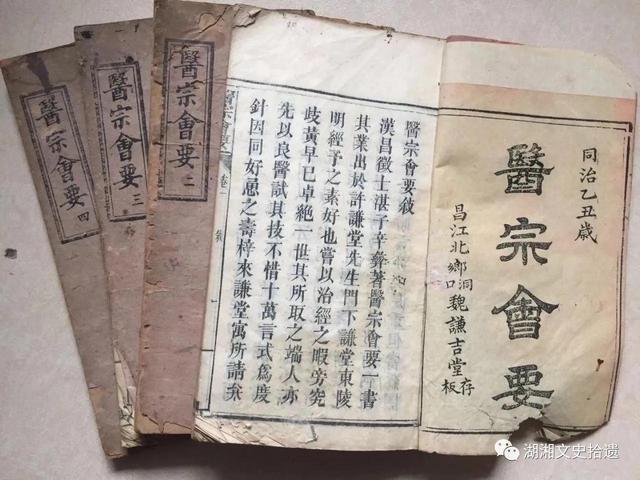 同治乙丑歲
醫宗會要
昌江北鄉洞口魏謙吉堂存板
醫宗會要敘
漢昌徵士湛子辛彝著醫宗會要一書
其業出於許謙堂先生門下謙堂東陵
明經予之素好也嘗以治經之暇旁究
歧黃早已卓絕一世其所取之端人亦
先以良醫試其技不惜十萬言式為度
針因同好慫之壽梓來謙堂寓所請弁
醫宗會要
卷一
醫宗會要 二
醫宗會要 三
醫宗會要 四
湖湘文史拾遗